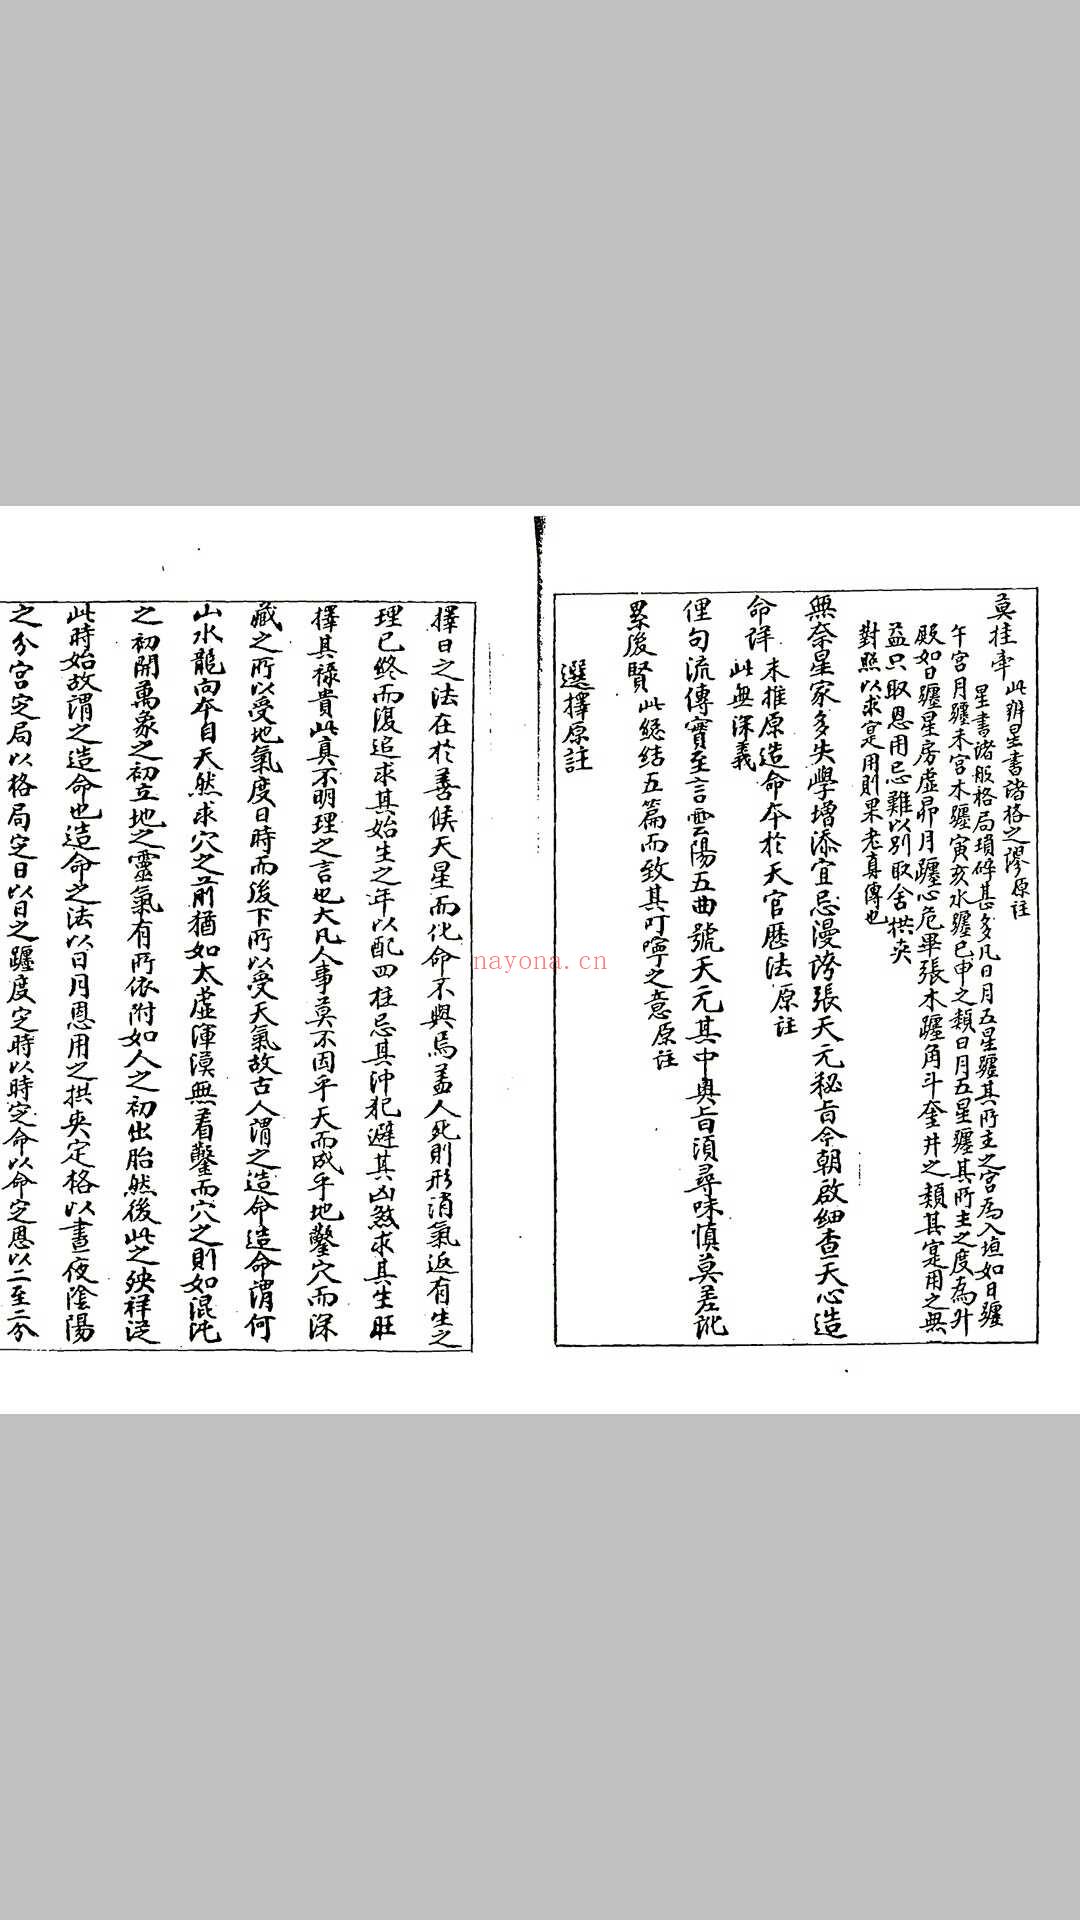 莫挂牽
此辨星書諸格之謬原註
星書諸般格局瑣碎甚多凡日月五星躔其所主之宮為入垣如日躔
午宮月躔未宮木躔寅亥水躔巳申之類日月五星躔其所主之度為升
殿如日躔星房虛昴月躔心危畢張木躔角斗奎井之類其寔用之無
益只取恩用忌難以別取舍拱夾
對照以求寔用則果老真傳也
無奈星家多失學增添宜忌漫誇張天元秘旨今朝啟細查天心造
命詳
末推原造命本於天官曆法原註
此無深義
俚句流傳實至言雲陽五曲號天元其中奧旨須尋味慎莫差訛
累後賢
此總結五篇而致其叮嚀之意原註
選擇原註
擇日之法在於善候天星而化命不與焉蓋人死則形消氣返有生之
理已終而復追求其始生之年以配四柱忌其沖犯避其凶煞求其生旺
擇其祿貴此真不明理之言也大凡人事莫不因乎天而成乎地鑿穴而深
藏之所以受地氣度日時而後下所以受天氣故古人謂之造命造命謂何
山水龍向本自天然求穴之前猶如太虛渾漠無着鑿而穴之則如混沌
之初開萬象之初立地之靈氣有所依附如人之初出胎然後此之殃祥從
此時始故謂之造命也造命之法以日月恩用之拱夾定格以晝夜陰陽
之分宮定局以格局定日以日之躔度定時以時定命以命定恩以二至二分
nayona.cn